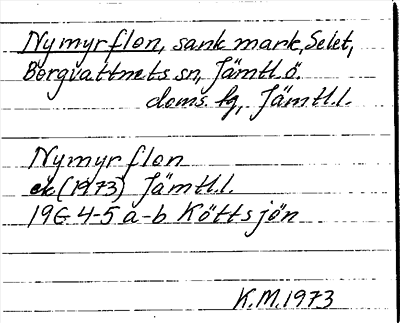 Nymyrflon, sank mark, Selet,
Borgvattnets sn, Jämtl. ö.
doms. fg, Jämtl. l.
Nymyrflon
ek (1973) Jämtl. l.
19G 4-5 a-b Köttsjön
K.M. 1973